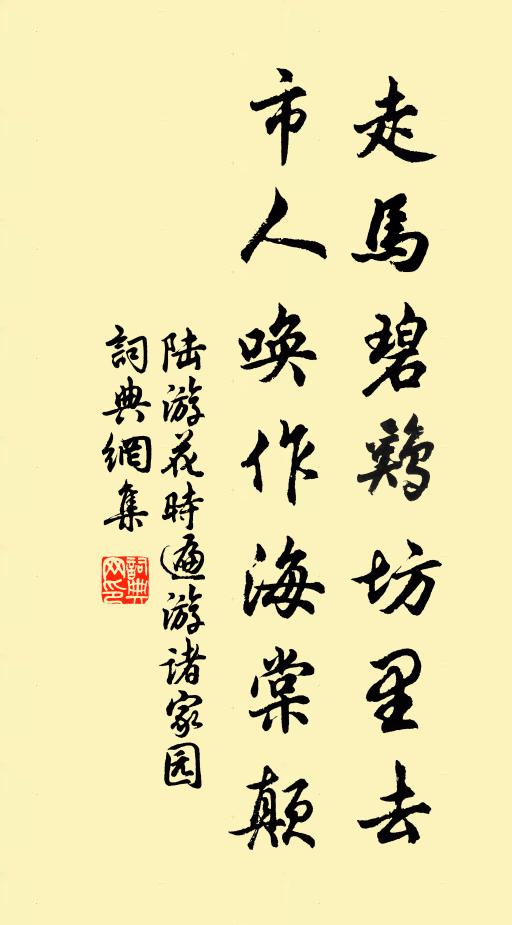 走馬碧鷄坊里去
市人喚作海棠顛
陆游花時遍游诸家园
詞典網集
詞典網印